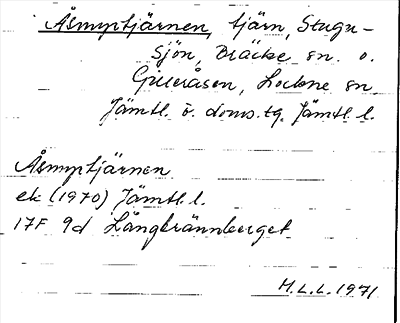 Åsmyrtjärnen, tjärn, Stugu-
sjön, Bräcke sn. o.
Gilleråsen, Lockne sn.
Jämtl. ö. doms. tg. Jämtl. l.
Åsmyrtjärnen
ek (1970) Jämtl. l.
17F 9d Långbrännberget
H.L.L. 1971